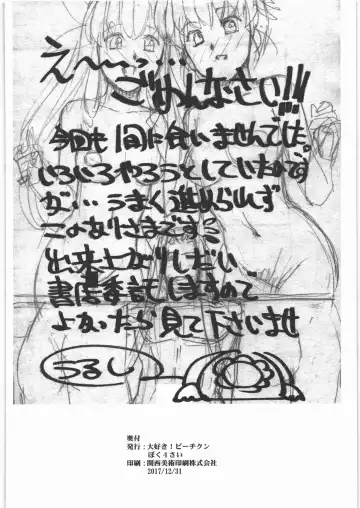 え～っ…
ごめんなさい!!!
今回も間に合いませんでした。
いろいろやろうとしていたのです
が…うまく進められず
このありさまです
出来上がりしだい
書店委託しますので
よかったら見て下さいませ
うるし
奥付
発行：大好き！ピーチクン
ぼく4さい
印刷：関西美術印刷株式会社
2017/12/31